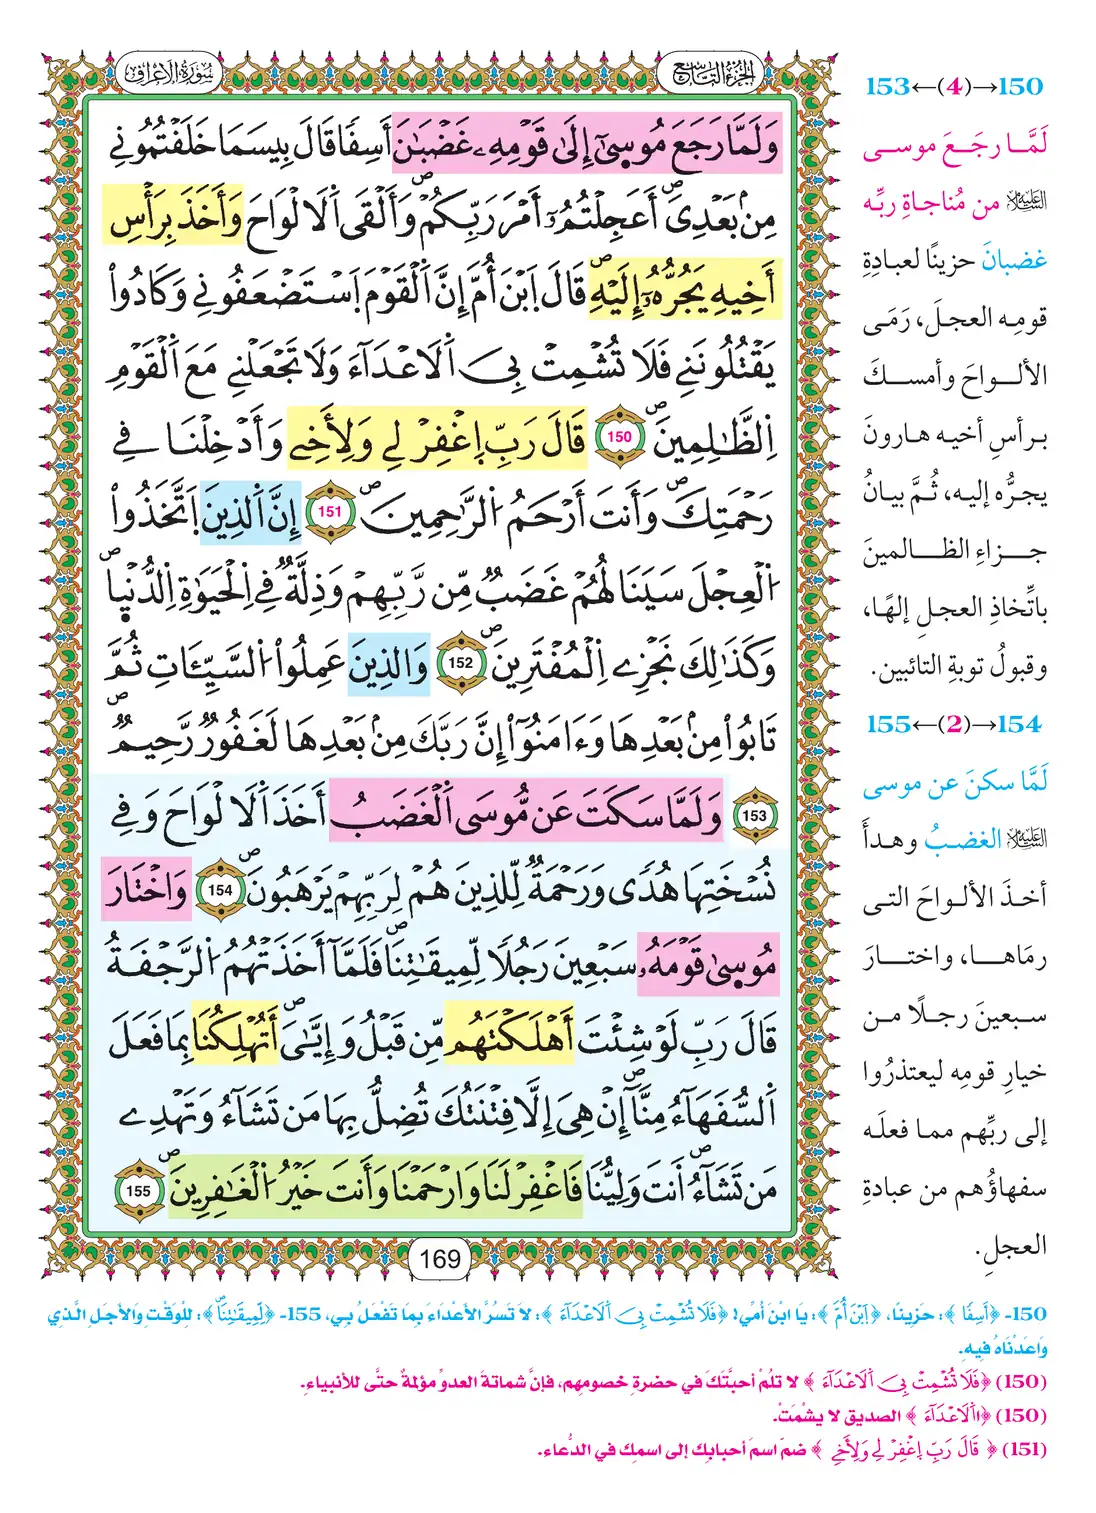 الجُزْءُ التَّاسِع
سُورَةُ الأَعْرَاف
وَلَمَّا رَجَعَ مُوسىٰٓ إِلَىٰ قَوْمِهِۦ غَضْبَٰنَ أَسِفٗا قَالَ بِيسَمَا خَلَفْتُمُونِے
مِنۢ بَعْدِيَٓۖ أَعَجِلْتُمُۥٓ أَمْرَ رَبِّكُمْۖ وَأَلْقَى اَ۬لَالْوَاحَ وَأَخَذَ بِرَأْسِ
أَخِيهِ يَجُرُّهُۥٓ إِلَيْهِۖ قَالَ اَ۪بْنَ أُمَّ إِنَّ اَ۬لْقَوْمَ اَ۪سْتَضْعَفُونِے وَكَادُواْ
يَقْتُلُونَنِے فَلَا تُشْمِتْ بِيَ اَ۬لَاعْدَآءَ وَلَا تَجْعَلْنِے مَعَ اَ۬لْقَوْمِ
اِ۬لظَّٰلِمِينَۖ 150 قَالَ رَبِّ اِ۪غْفِرْ لِے وَلِأَخِے وَأَدْخِلْنَا فِے
رَحْمَتِكَۖ وَأَنتَ أَرْحَمُ اُ۬لرَّٰحِمِينَۖ 151 إِنَّ اَ۬لذِينَ اَ۪تَّخَذُواْ
اُ۬لْعِجْلَ سَيَنَالُهُمْ غَضَبٞ مِّن رَّبِّهِمْ وَذِلَّةٞ فِے اِ۬لْحَيَوٰةِ اِ۬لدُّنْيٜاۖ
وَكَذَٰلِكَ نَجْزِے اِ۬لْمُفْتَرِينَۖ 152 وَالذِينَ عَمِلُواْ اُ۬لسَّيِّـَٔاتِ ثُمَّ
تَابُواْ مِنۢ بَعْدِهَا وَءَامَنُوٓاْ إِنَّ رَبَّكَ مِنۢ بَعْدِهَا لَغَفُورٞ رَّحِيمٞۖ
153 وَلَمَّا سَكَتَ عَن مُّوسَى اَ۬لْغَضَبُ أَخَذَ اَ۬لَالْوَاحَ وَفِے
نُسْخَتِهَا هُدٗى وَرَحْمَةٞ لِّلذِينَ هُمْ لِرَبِّهِمْ يَرْهَبُونَۖ 154 وَاخْتَارَ
مُوسىٰ قَوْمَهُۥ سَبْعِينَ رَجُلٗا لِّمِيقَٰتِنَاۖ فَلَمَّآ أَخَذَتْهُمُ اُ۬لرَّجْفَةُ
قَالَ رَبِّ لَوْ شِئْتَ أَهْلَكْتَهُم مِّن قَبْلُ وَإِيَّٰيَۖ أَتُهْلِكُنَا بِمَا فَعَلَ
اَ۬لسُّفَهَآءُ مِنَّآۖ إِنْ هِيَ إِلَّا فِتْنَتُكَ تُضِلُّ بِهَا مَن تَشَآءُ وَتَهْدِے
مَن تَشَآءُۖ أَنتَ وَلِيُّنَا فَاغْفِرْ لَنَا وَارْحَمْنَا وَأَنتَ خَيْرُ اُ۬لْغَٰفِرِينَۖ 155
169
150→(4)←153
لَمَّا رَجَعَ موسى
عليه السلام من مُناجاةِ ربِّه
غضبانَ حزينًا لعبادِةِ
قومِه العجلَ، رَمَى
الألواحَ وأمسكَ
برأسِ أخيه هارونَ
يجرُّه إليه، ثُمَّ بيانُ
جزاءِ الظالمينَ
باتِّخاذِ العجلِ إلهًا،
وقبولُ توبةِ التائبين.
154→(2)←155
لَمَّا سكنَ عن موسى
عليه السلام الغضبُ وهدأَ
أخذَ الألواحَ التى
رمَاها، واختارَ
سبعينَ رجلًا من
خيارِ قومِه ليعتذرُوا
إلى ربِّهم مما فعلَه
سفهاؤُهم من عبادةِ
العجلِ.
150- ﴿أَسِفًا﴾: حَزِينًا، ﴿اَ۪بْنَ أُمَّ﴾: يَا ابْنَ أُمِّي! ﴿فَلَا تُشْمِتْ بِيَ اَ۬لَاعْدَآءَ﴾: لاَ تَسُرَّ الأَعْدَاءَ بِمَا تَفْعَلُ بِي، 155- ﴿لِّمِيقَٰتِنَاۖ﴾: لِلْوَقْتِ وَالأَجَلِ الَّذِي
وَاعَدْنَاهُ فِيهِ.
(150) ﴿فَلَا تُشْمِتْ بِيَ اَ۬لَاعْدَآءَ﴾ لا تلُمْ أحبَّتَكَ في حضرةِ خصومِهِم، فإنَّ شماتةَ العدوِّ مؤلمةٌ حتَّى للأنبياءِ.
(150) ﴿اَ۬لَاعْدَآءَ﴾ الصديق لا يشْمَتْ.
(151) ﴿قَالَ رَبِّ اِ۪غْفِرْ لِے وَلِأَخِے﴾ ضمّ اسمَ أحبابِك إلى اسمِك في الدُّعاء.